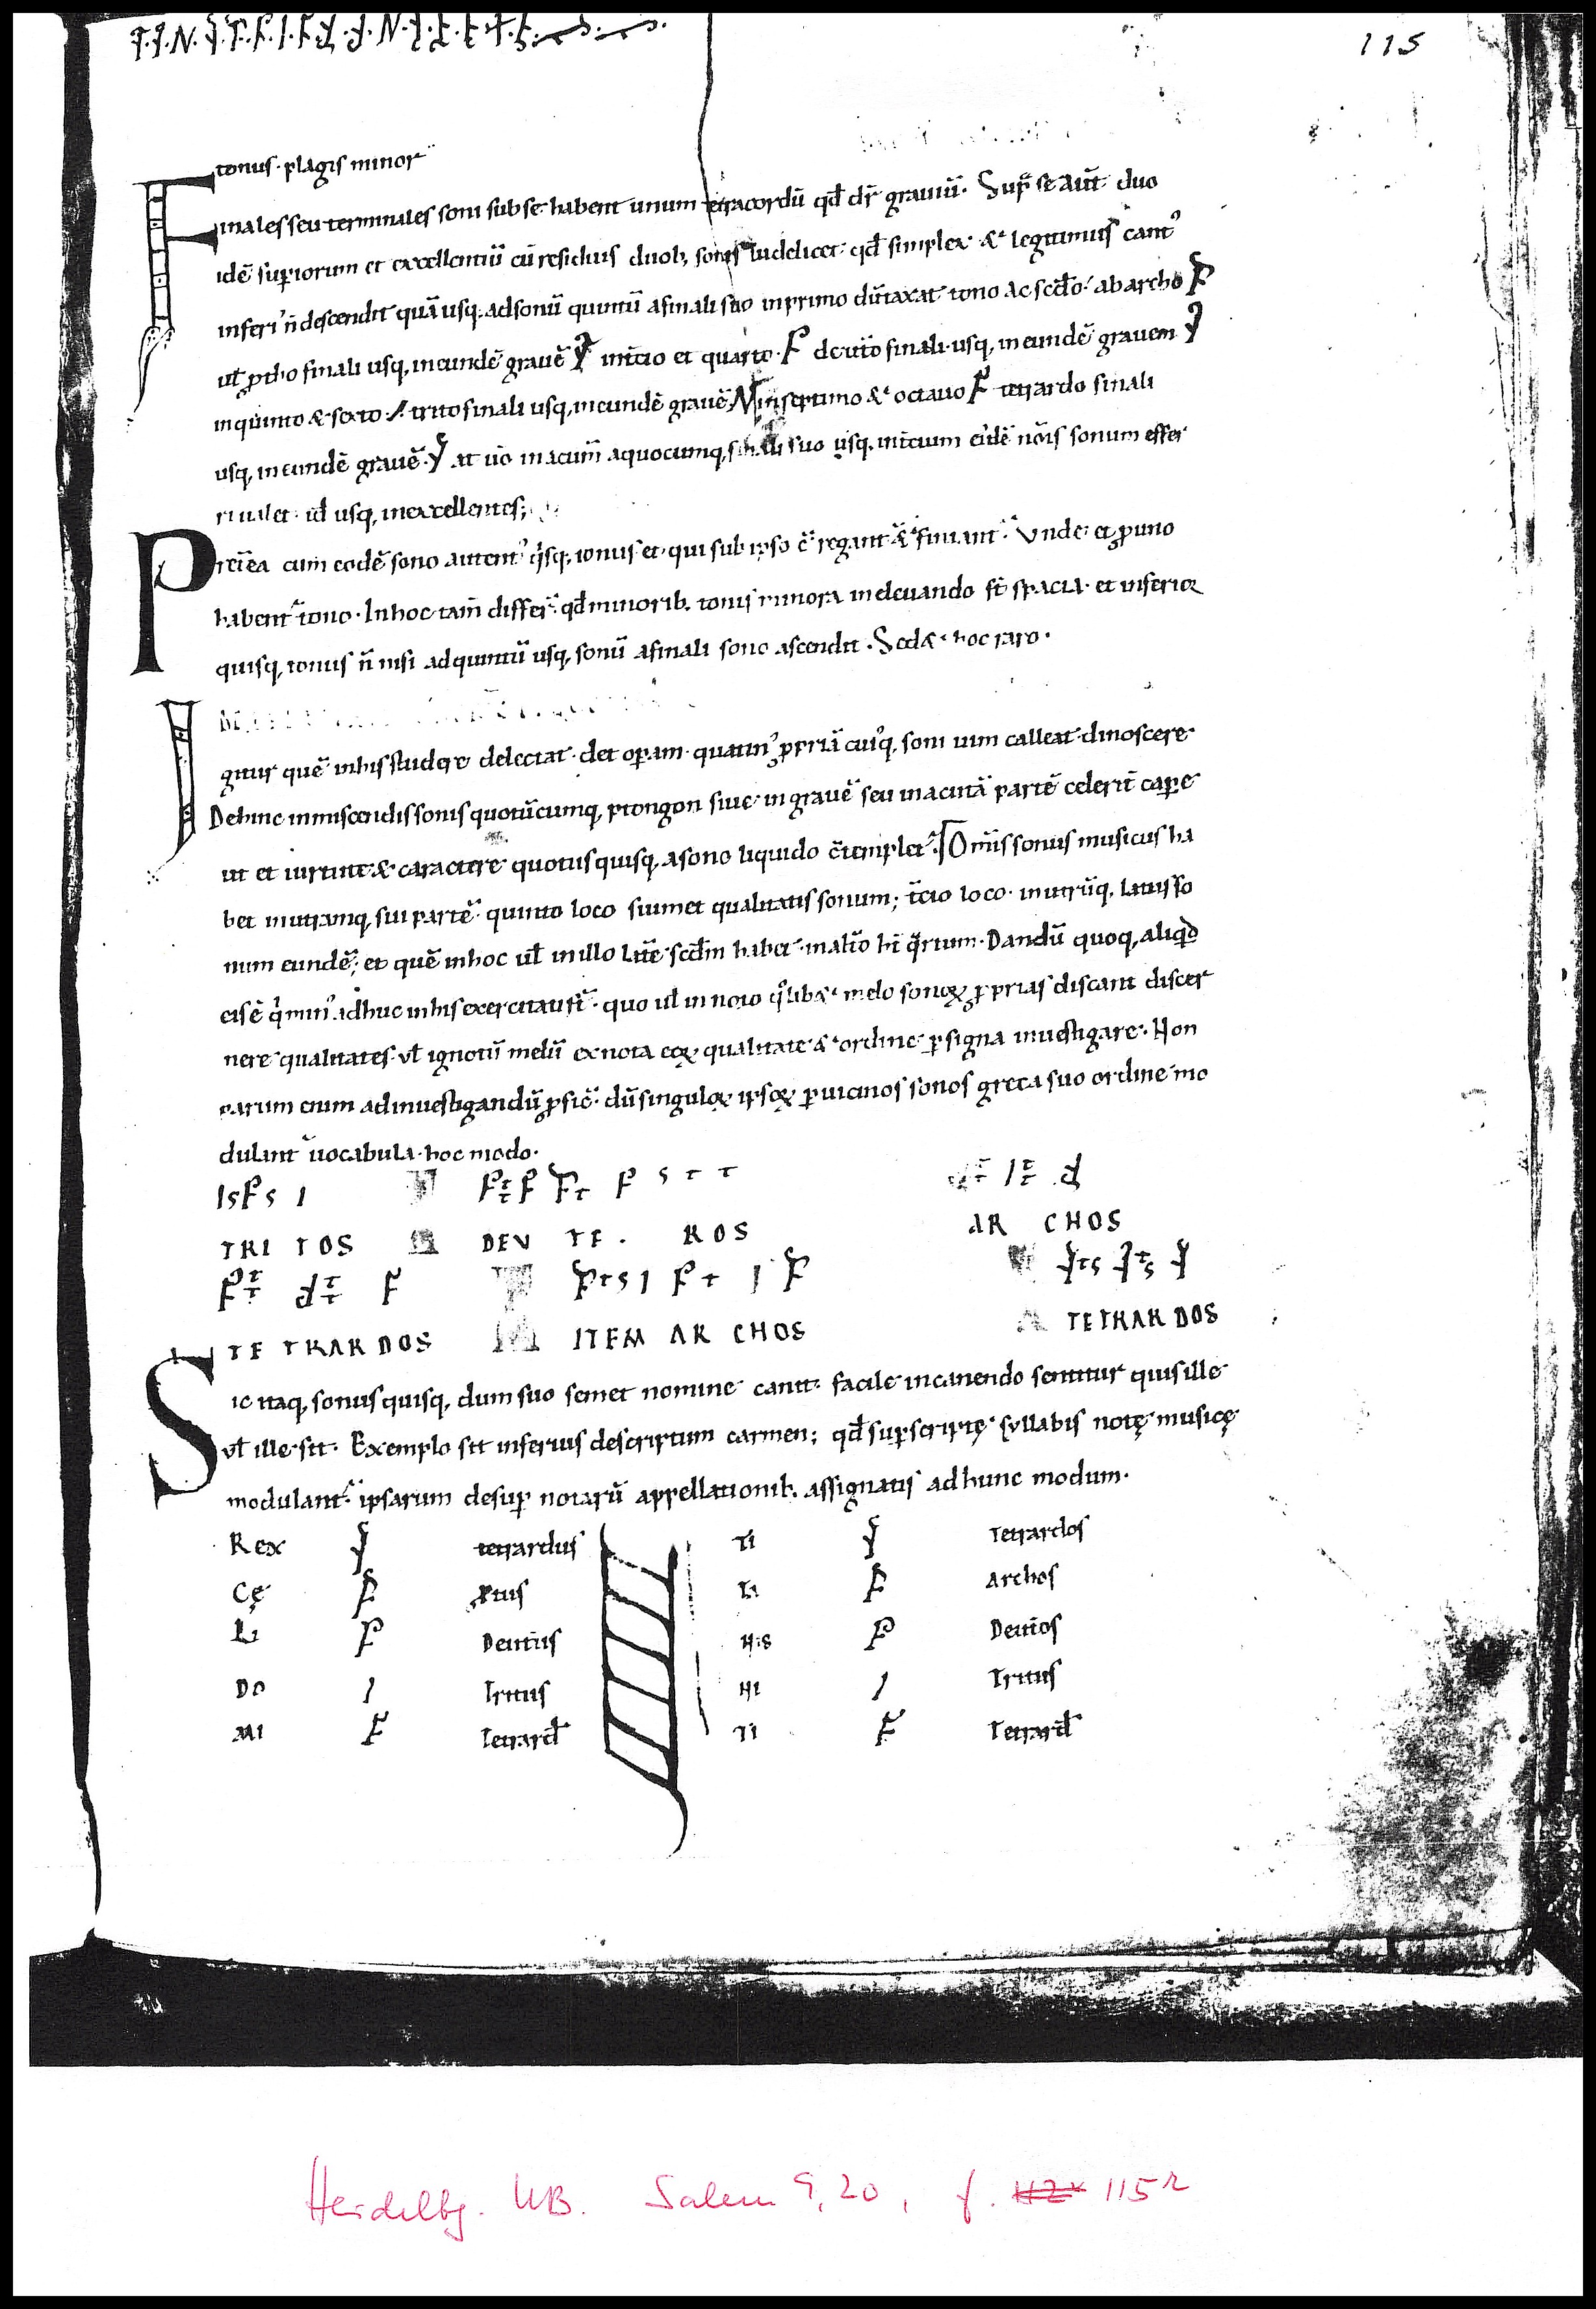 115
tonus · plagis minor
Finales seu terminales soni sub se habent unum tetracordū qd̄ dr̄ graviū. Supˉ se aūt duo
idē supiorum et excellentiū cū residuis duob; sonis videlicet qd̄ simplex & legitimus cantꝰ
inferiꝰ n̄ descendit quā usq; ad sonū quintū a finali suo in primo dūtaxat tono ac scd̄o ab archo
ul̄ ꝓtho finali usq; in eundē gravē in tcio et quarto deut̄o finali usq; in eundē gravem
in quinto & sexto trito finali usq; in eundē gravē in septimo & octavo tetrardo finali
usq; in eundē gravē at uo in acum̄ a quocumq; finali suo usq; in tcium eidē nōis sonum effer
ri valet id usq; in excellentes;
Pret̄ea cum eodē sono autentꝰ qisq; tonus et qui sub ipso ē regant̃ & finiant̃ Unde et ꝓ uno
habent̃ tono. In hoc tam̄ differt̃ qd̄ minorib; tonis minora in elevando st̄ spacia et inferior
quisq; tonus n̄ nisi ad quintū usq; sonū a finali sono ascendit. Sed & hoc raro.
Igitur quē in his studere delectat det opam quatinꝰ ꝓpriā cuiꝰq; soni vim calleat dinoscere
Dehinc in miscendis sonis quotūcumq; ptongon sive in gravē seu in acutā partē celerit̄ capere
ut et virtute & caractere quotus quisq; a sono liquido c̄templet̃. Omīs sonus musicus ha
bet in utramq; sui partē quinto loco suimet qualitatis sonum; tcio loco in utrūq; latus so
num eundē; et quē in hoc ul̄ in illo lat̄e scd̄m habet in alt̄o ht̄ qrtum. Dandū quoq; aliqid
eis ē qi minꝰ adhuc in his exercitati st̄ quo ul̄ in noto qꝰlib& melo sonoꝝ ꝓprias discant discer
nere qualitates ul̄ ignotū melū ex nota eoꝝ qualitate & ordine p signa investigare. Non
parum enim ad investigandū ꝓficit̃ dū singuloꝝ ipsoꝝ p vicinos sonos greca suo ordine mo
dulant̃ vocabula hoc modo.
TRI TOS DEV TE. ROS AR CHOS
TE TRAR DOS ITEM AR CHOS TETRAR DOS
Sic itaq; sonus quisq; dum suo semet nomine canit facile in canendo sentitur quis ille
vl̄ ille sit. Exemplo sit inferius descriptum carmen; qd̄ supscriptę syllabis notę musicę
modulant̃ ipsarum desup notarū appellationib; assignatis ad hunc modum.
Rex tetrardus Ti Tetrardos
Cę ꝓtus Li Archos
Li Deut̄us His Deut̄os
Do Tritus Hi Tritus
Mi Tetrard̄ Ti Tetrard̄
Heidelbg. UB. Salem 9,20, f. 115r